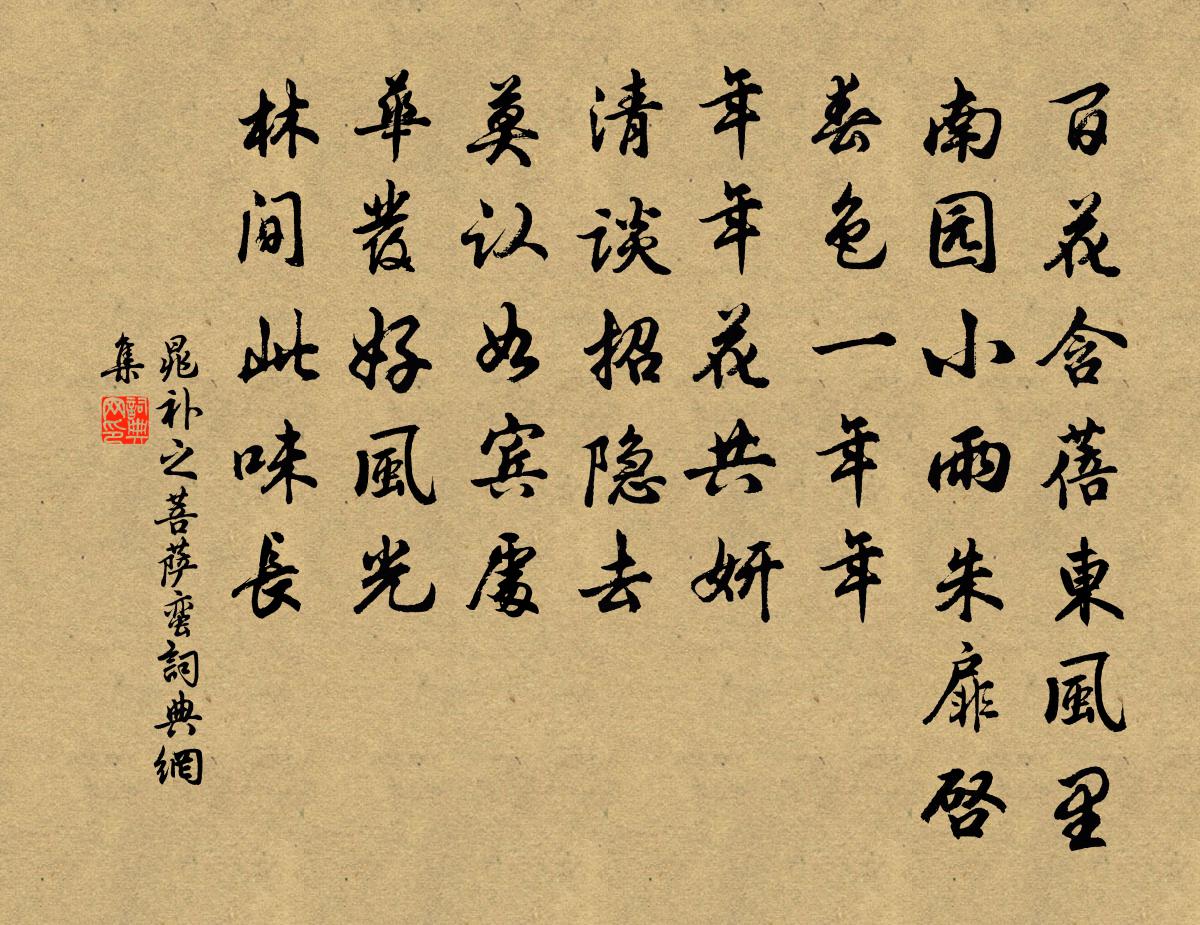 百花含蓓東風里
南园小雨朱扉啓
春色一年年
年年花共妍
清談招隐去
莫认如宾處
華發好風光
林间此味長
晁补之菩萨蛮詞典網
集
詞典
网印